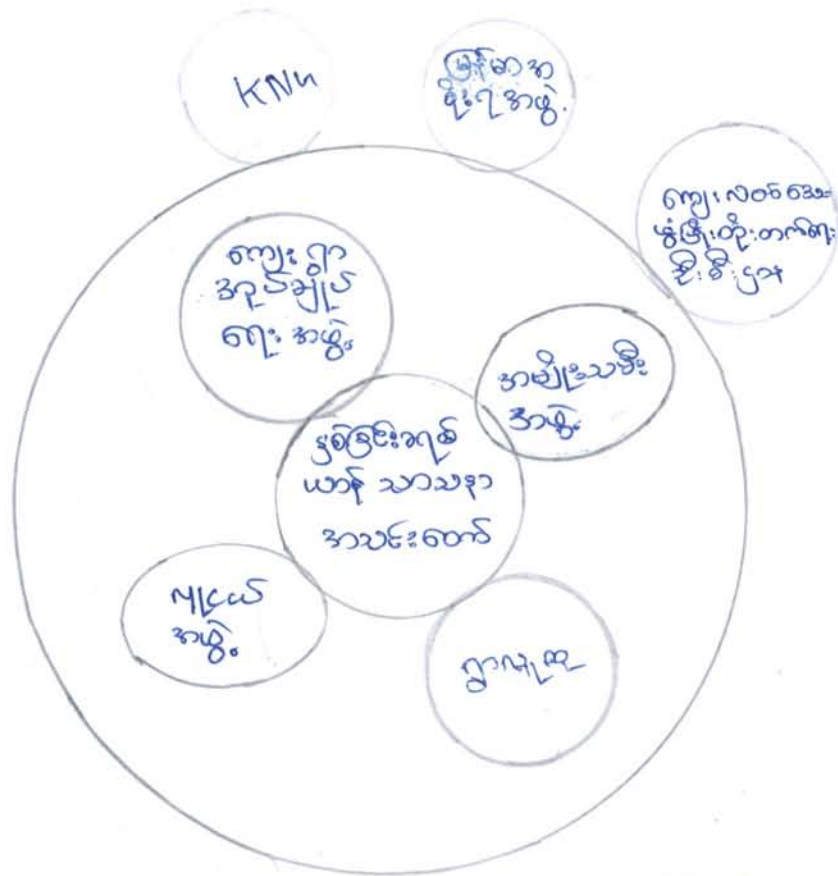 KNU
မြန်မာအ
စိုးရအဖွဲ့
ကျေးလက်ဒေသ
ဖွံ့ဖြိုးတိုးတက်ရေး
ဦးစီးဌာန
ကျေးရွာ
အုပ်ချုပ်
ရေးအဖွဲ့
အမျိုးသမီး
အဖွဲ့
နှစ်ခြင်းခရစ်
ယာန် သာသနာ
အသင်းတော်
လူငယ်
အဖွဲ့
ရွာလူထု